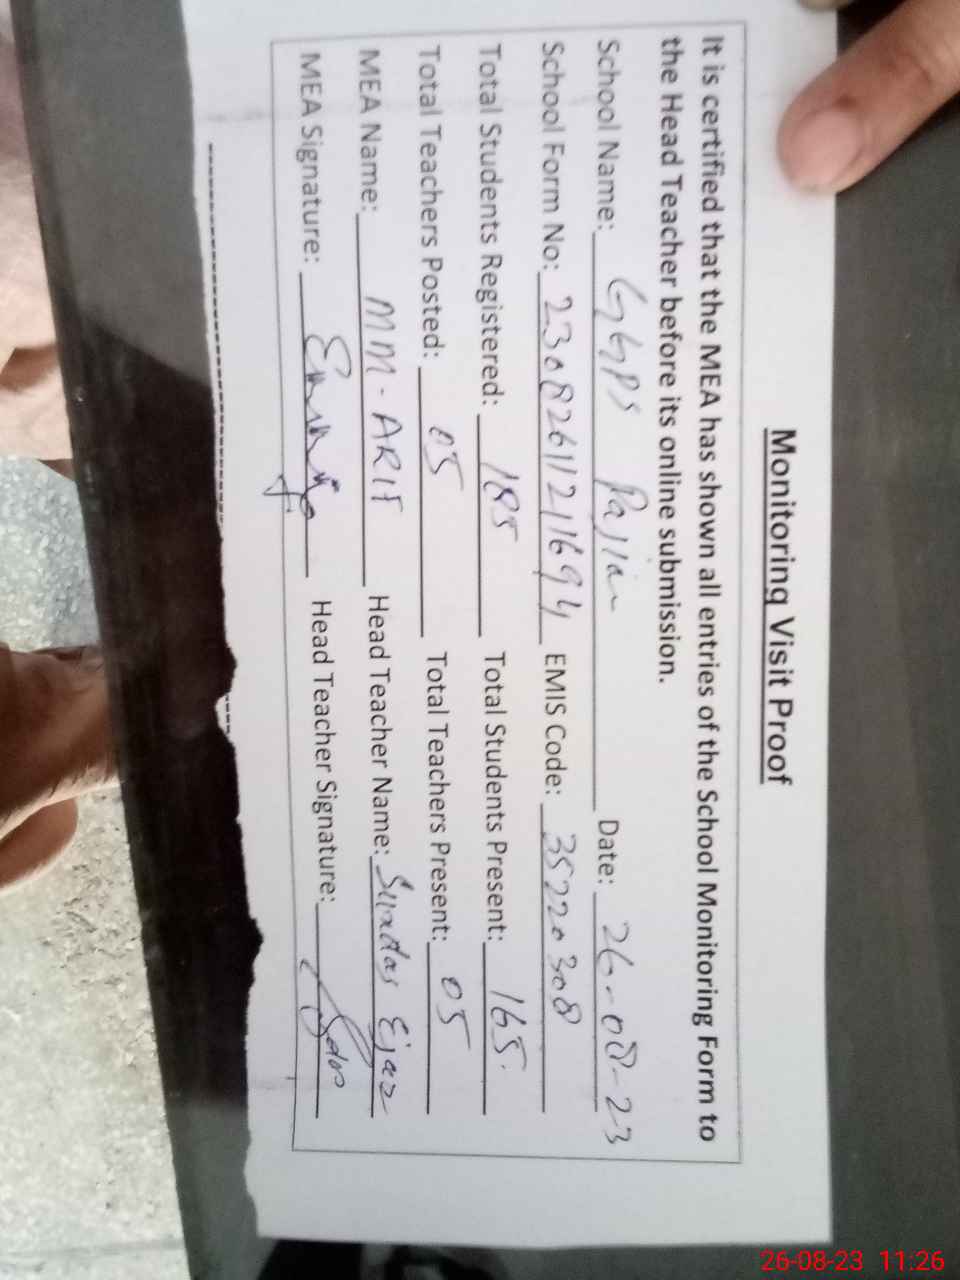 Monitoring Visit Proof
It is certified that the MEA has shown all entries of the School Monitoring Form to
the Head Teacher before its online submission.
School Name: GGPS Pajian Date: 26-08-23
School Form No: 2308261121694 EMIS Code: 35220308
Total Students Registered: 185 Total Students Present: 165
Total Teachers Posted: 05 Total Teachers Present: 05
MEA Name: MM-ARIF Head Teacher Name: Ejaz
MEA Signature: Head Teacher Signature:
26-08-23 11:26